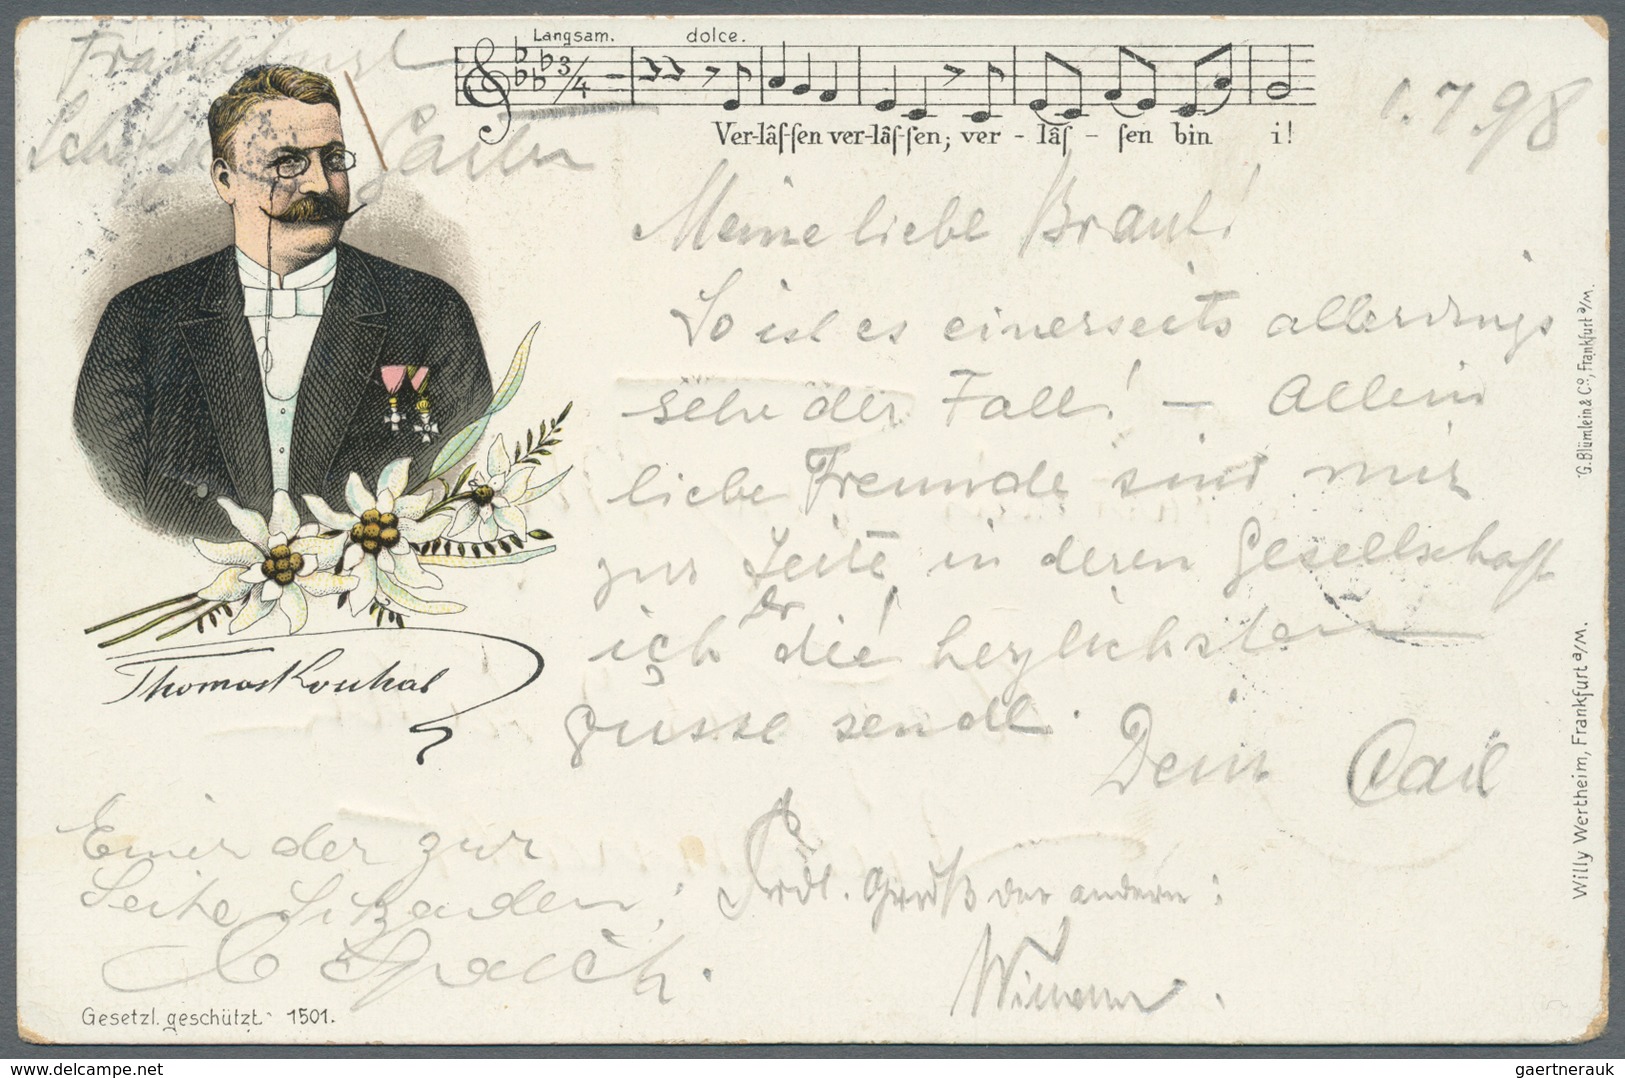 Langsam. dolce.
3/4
Ver-lâſ-ſen ver-lâſ-ſen; ver - lâſ - ſen bin i!
Frankfurt
1.7.98
Meine liebe Braut!
So ist es einerseits allerdings
sehr der Fall! — Allein
liebe Freunde sind mir
zur Seite, in deren Gesellschaft
ich Dr die! herzlichsten
Grüsse sendet.
Dein Carl
Thomas Koschat
Einer der zur
Seite Sitzenden:
Frdl. Gruß der andern:
Gesetzl. geschützt. 1501.
G. Blümlein & Co., Frankfurt a/M.
Willy Wertheim, Frankfurt a/M.
delcampe.net
gaertnerauk